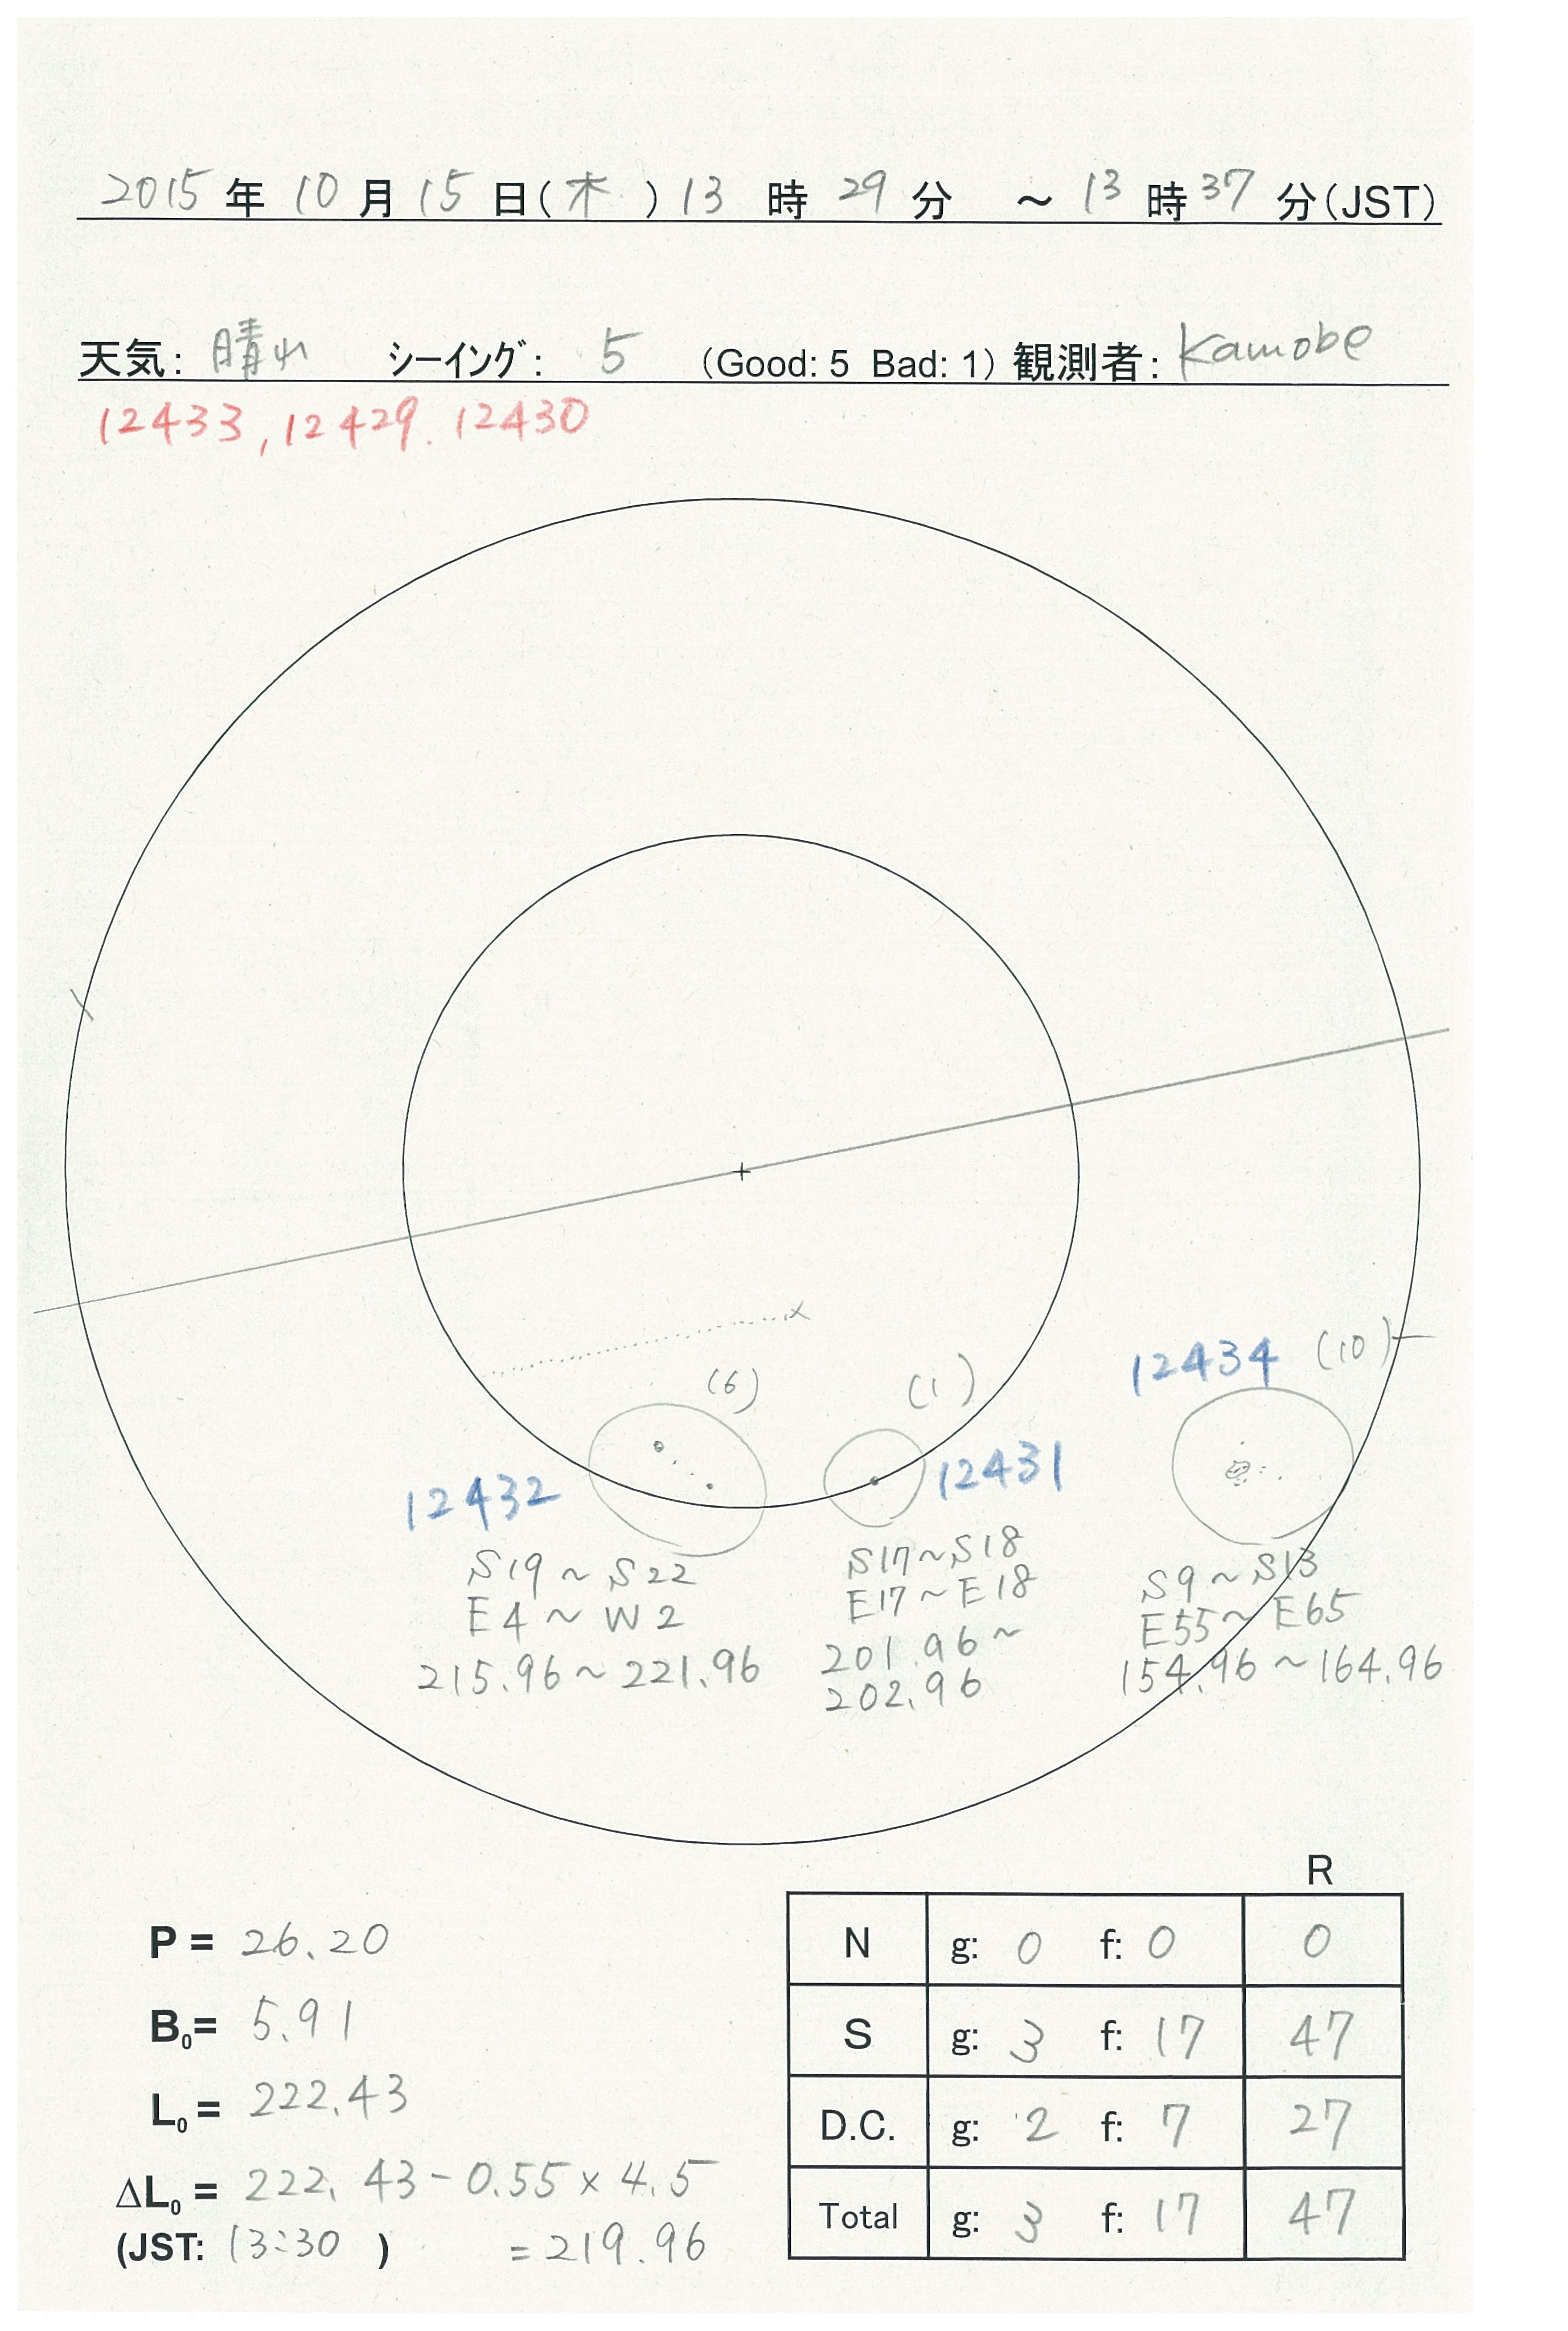 2015 年 10 月 15 日(木) 13 時 29 分 ～ 13 時 37 分(JST)
天気: 晴れ シーイング: 5 (Good: 5 Bad: 1) 観測者: Kamobe
12433, 12429. 12430
12434 (10)
(6) (1)
12432 12431
S19～S22
E4～W2
215.96～221.96
S17～S18
E17～E18
201.96～
202.96
S9～S13
E55～E65
154.96～164.96
R
P = 26.20
B0= 5.91
L0 = 222.43
ΔL0 = 222.43-0.55×4.5
(JST: 13:30 ) =219.96
N g: 0 f: 0 0
S g: 3 f: 17 47
D.C. g: 2 f: 7 27
Total g: 3 f: 17 47